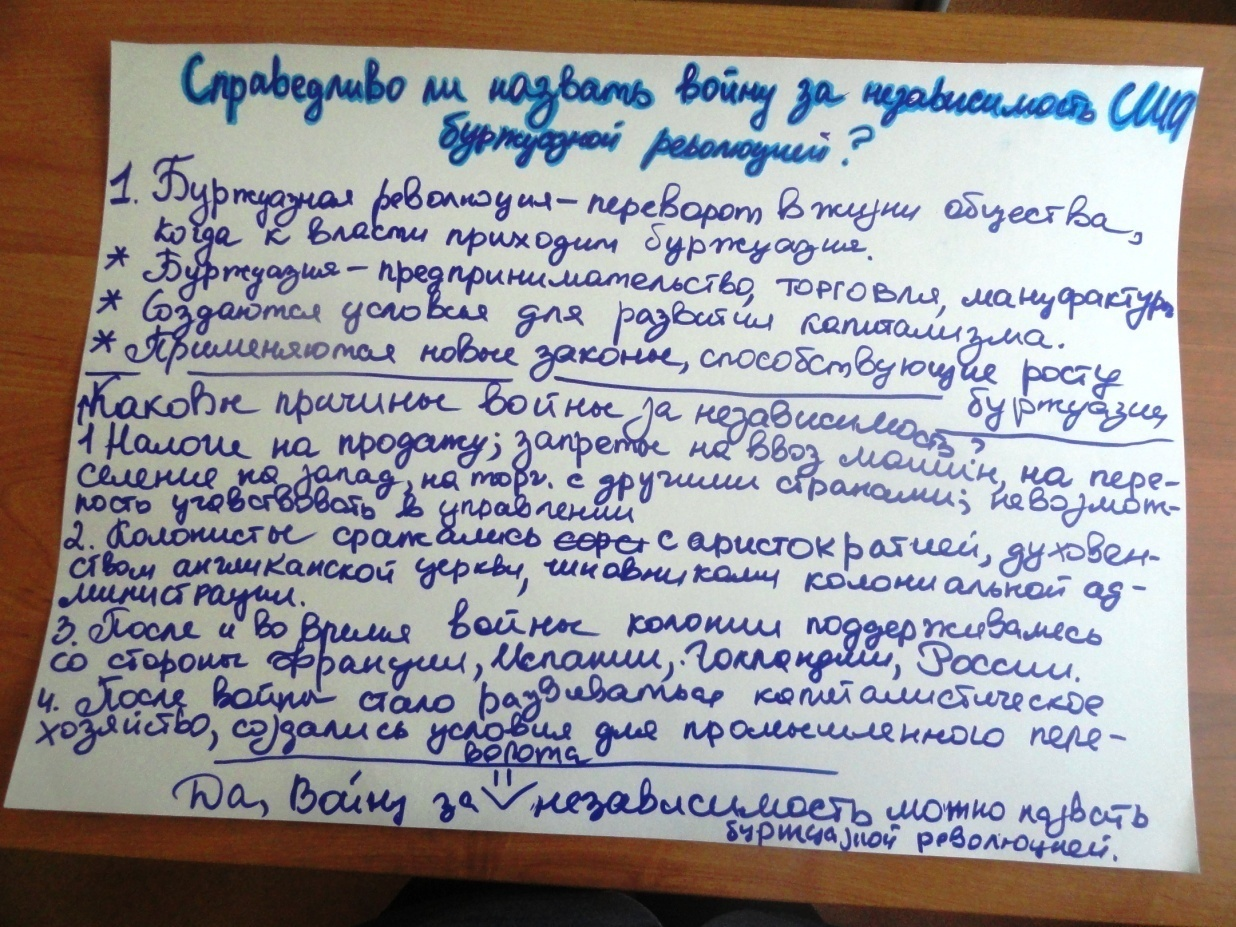 Справедливо ли назвать войну за независимость США
буржуазной революцией?
1. Буржуазная революция – переворот в жизни общества,
когда к власти приходит буржуазия.
* Буржуазия – предпринимательство, торговля, мануфактуры
* Создаются условия для развития капитализма.
* Применяются новые законы, способствующие росту
буржуазии,
Каковы причины войны за независимость?
1 Налоги на продажу; запреты на ввоз машин, на пере-
селение на запад, на торг. с другими странами; невозмож-
ность учавствовать в управлении
2. Колонисты сражались с аристократией, духовен-
ством англиканской церкви, чиновниками колониальной ад-
министрации.
3. После и во время войны колонии поддерживались
со стороны Франции, Испании, Голландии, России.
4. После войны стало развиваться капиталистическое
хозяйство, создались условия для промышленного пере-
ворота
=
Да, Войну за независимость можно назвать
буржуазной революцией.